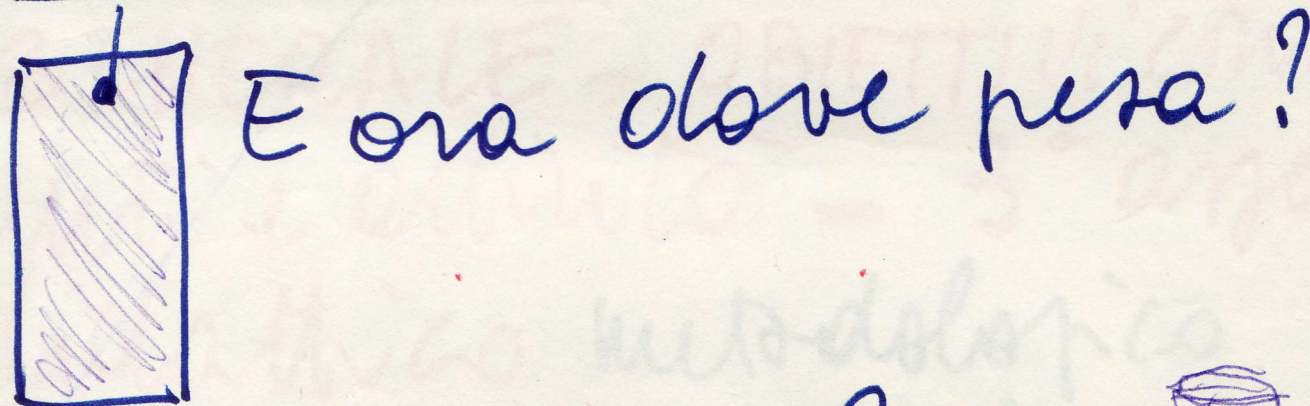 E ora dove pesa?